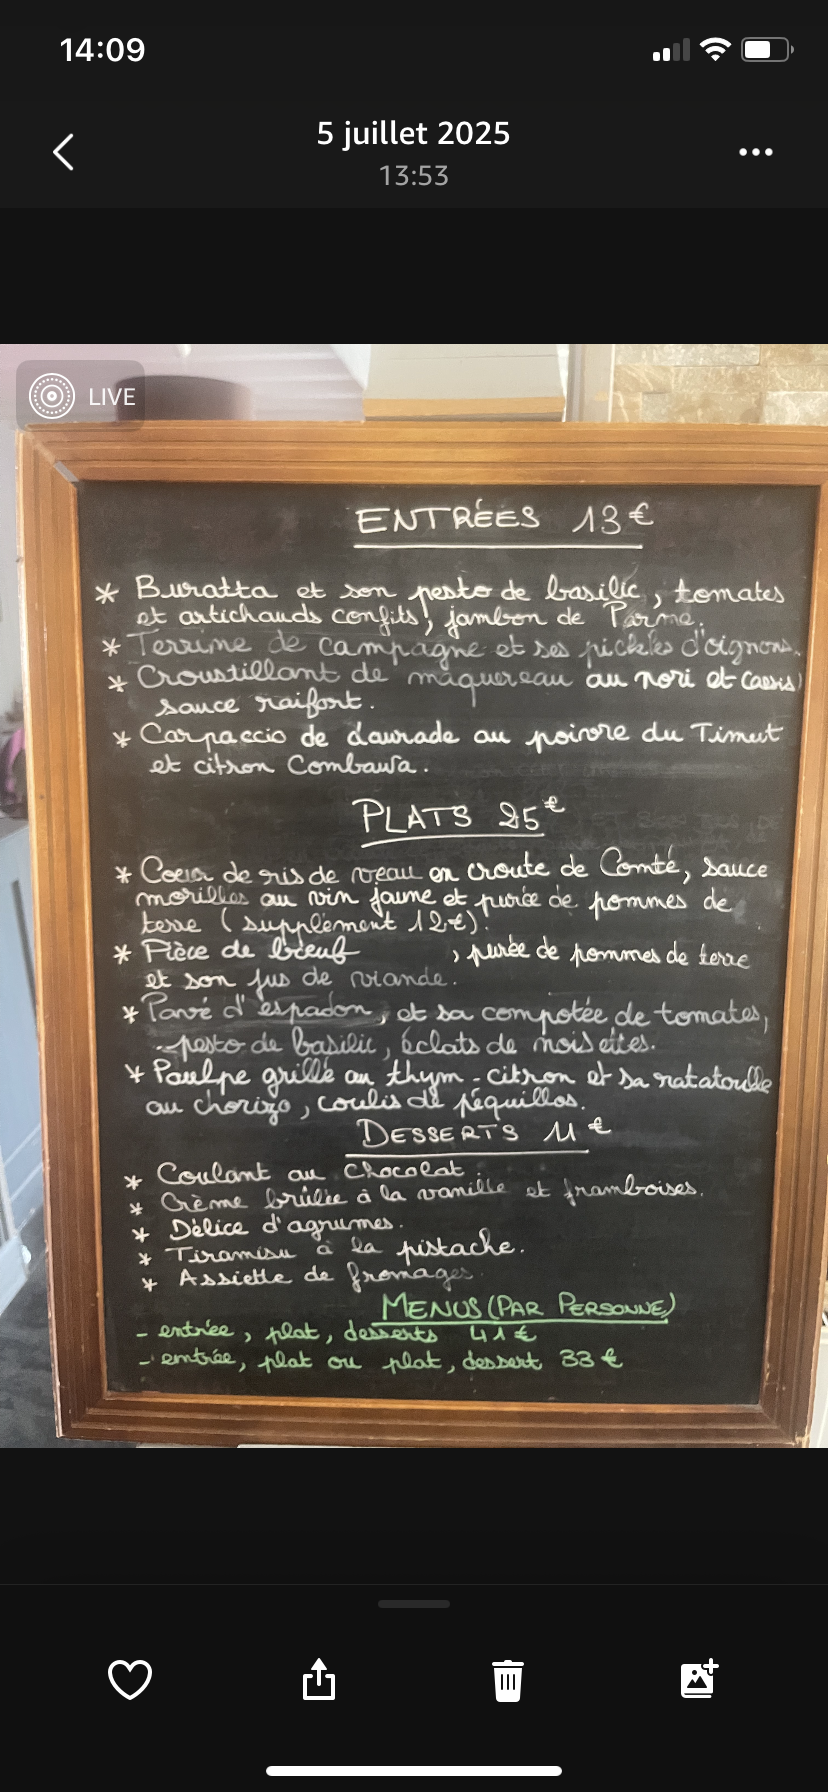 14:09
5 juillet 2025
13:53
LIVE
ENTRÉES 13€
* Buratta et son pesto de basilic, tomates
et artichauds confits, jambon de Parme.
* Terrine de campagne et ses pickles d'oignons.
* Croustillant de maquereau au nori et cassis,
sauce raifort.
* Carpaccio de daurade au poivre du Timut
et citron Combawa.
PLATS 25€
* Coeur de ris de veau en croute de Comté, sauce
morilles au vin jaune et purée de pommes de
terre (supplément 12€).
* Pièce de bœuf , purée de pommes de terre
et son jus de viande.
* Pavé d'espadon, et sa compotée de tomates,
pesto de basilic, éclats de noisettes.
* Poulpe grillé au thym-citron et sa ratatouille
au chorizo, coulis de péquillos.
DESSERTS 11€
* Coulant au chocolat.
* Crème brûlée à la vanille et framboises.
* Délice d'agrumes.
* Tiramisu à la pistache.
* Assiette de fromages.
MENUS (PAR PERSONNE)
- entrée, plat, desserts 41€
- entrée, plat ou plat, dessert 33€